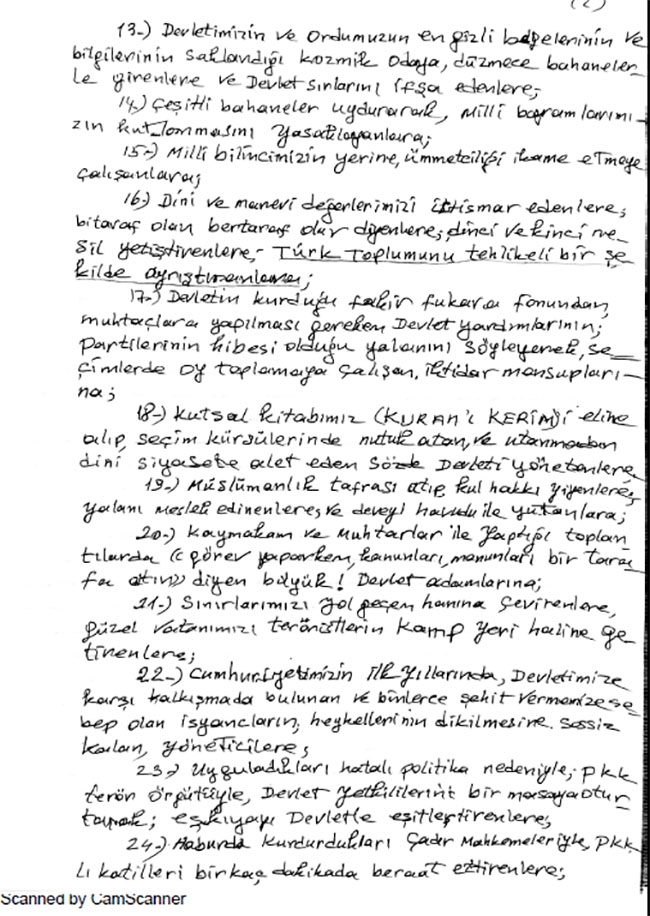 (2)
13-) Devletimizin ve Ordumuzun en gizli belgelerinin ve
bilgilerinin saklandığı kozmik odaya, düzmece bahaneler-
le girenlere ve Devlet sırlarını ifşa edenlere;
14-) Çeşitli bahaneler uydurarak, Milli bayramlarımı-
zın kutlanmasını yasaklayanlara;
15-) Milli bilincimizin yerine, ümmetciliği ikame etmeye
çalışanlara;
16-) Dini ve manevi değerlerimizi istismar edenlere;
bitaraf olan bertaraf olur diyenlere; dinci ve kinci ne-
sil yetiştirenlere;- Türk Toplumunu tehlikeli bir şe-
kilde ayrıştıranlara;
17-) Devletin kurduğu fakir fukara fonundan,
muhtaçlara yapılması gereken Devlet yardımlarının;
partilerinin hibesi olduğu yalanını söyleyerek, se-
çimlerde oy toplamaya çalışan, iktidar mensupları-
na;
18-) Kutsal kitabımız (KURAN'I KERİM)i eline
alıp, seçim kürsülerinde nutuk atan, ve utanmadan
dini siyasete alet eden sözde Devleti yönetenlere,
19-) Müslümanlık tafrası atıp, kul hakkı yiyenlere,
yalanı meslek edinenlere, ve deveyi havudu ile yutanlara;
20-) Kaymakam ve Muhtarlar ile yaptığı toplan
tılarda (( görev yaparken, kanunları, manunları bir tara
fa atın)) diyen büyük! Devlet adamlarına;
21-) Sınırlarımızı yol geçen hanına çevirenlere,
güzel vatanımızı teröristlerin kamp yeri haline ge
tirenlere;
22-) Cumhuriyetimizin ilk yıllarında, Devletimize
karşı kalkışmada bulunan ve binlerce şehit vermemize se
bep olan isyancıların, heykellerinin dikilmesine sessiz
kalan, yöneticilere;
23-) Uyguladıkları hatalı politika nedeniyle; PKK
terör örgütüyle, Devlet yetkililerini bir masaya otur
tarak; eşkıyayı Devletle eşitleştirenlere,
24-) Haburda kurdurdukları Çadır Mahkemeleriyle, PKK
lı katilleri birkaç dakikada beraat ettirenlere;
Scanned by CamScanner